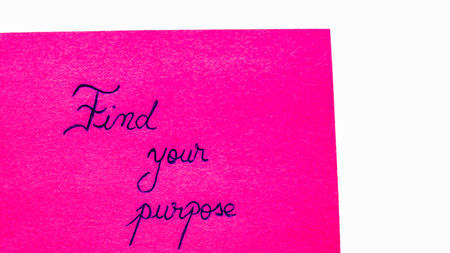 Find
your
purpose